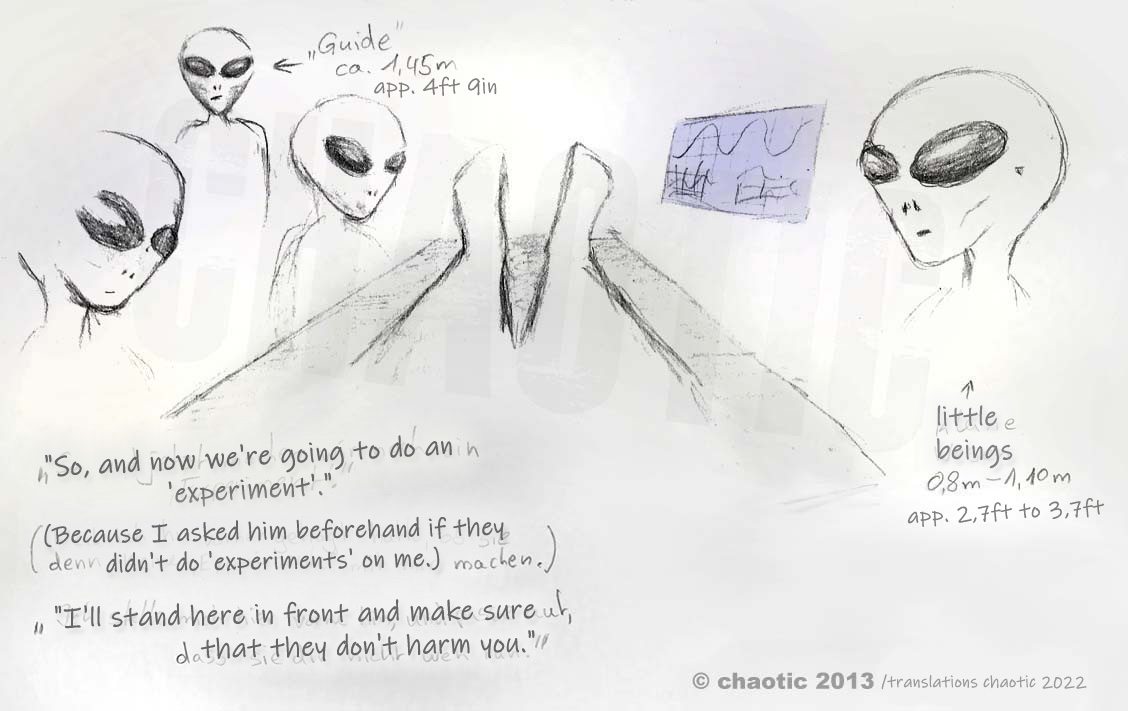 „Guide"
ca. 1,45m
app. 4ft 9in
little
beings
0,8m – 1,10m
app. 2,7ft to 3,7ft
"So, and now we're going to do an
'experiment'."
(Because I asked him beforehand if they
denn didn't do 'experiments' on me.) machen.)
"I'll stand here in front and make sure
that they don't harm you."
CHAOTIC
© chaotic 2013 /translations chaotic 2022